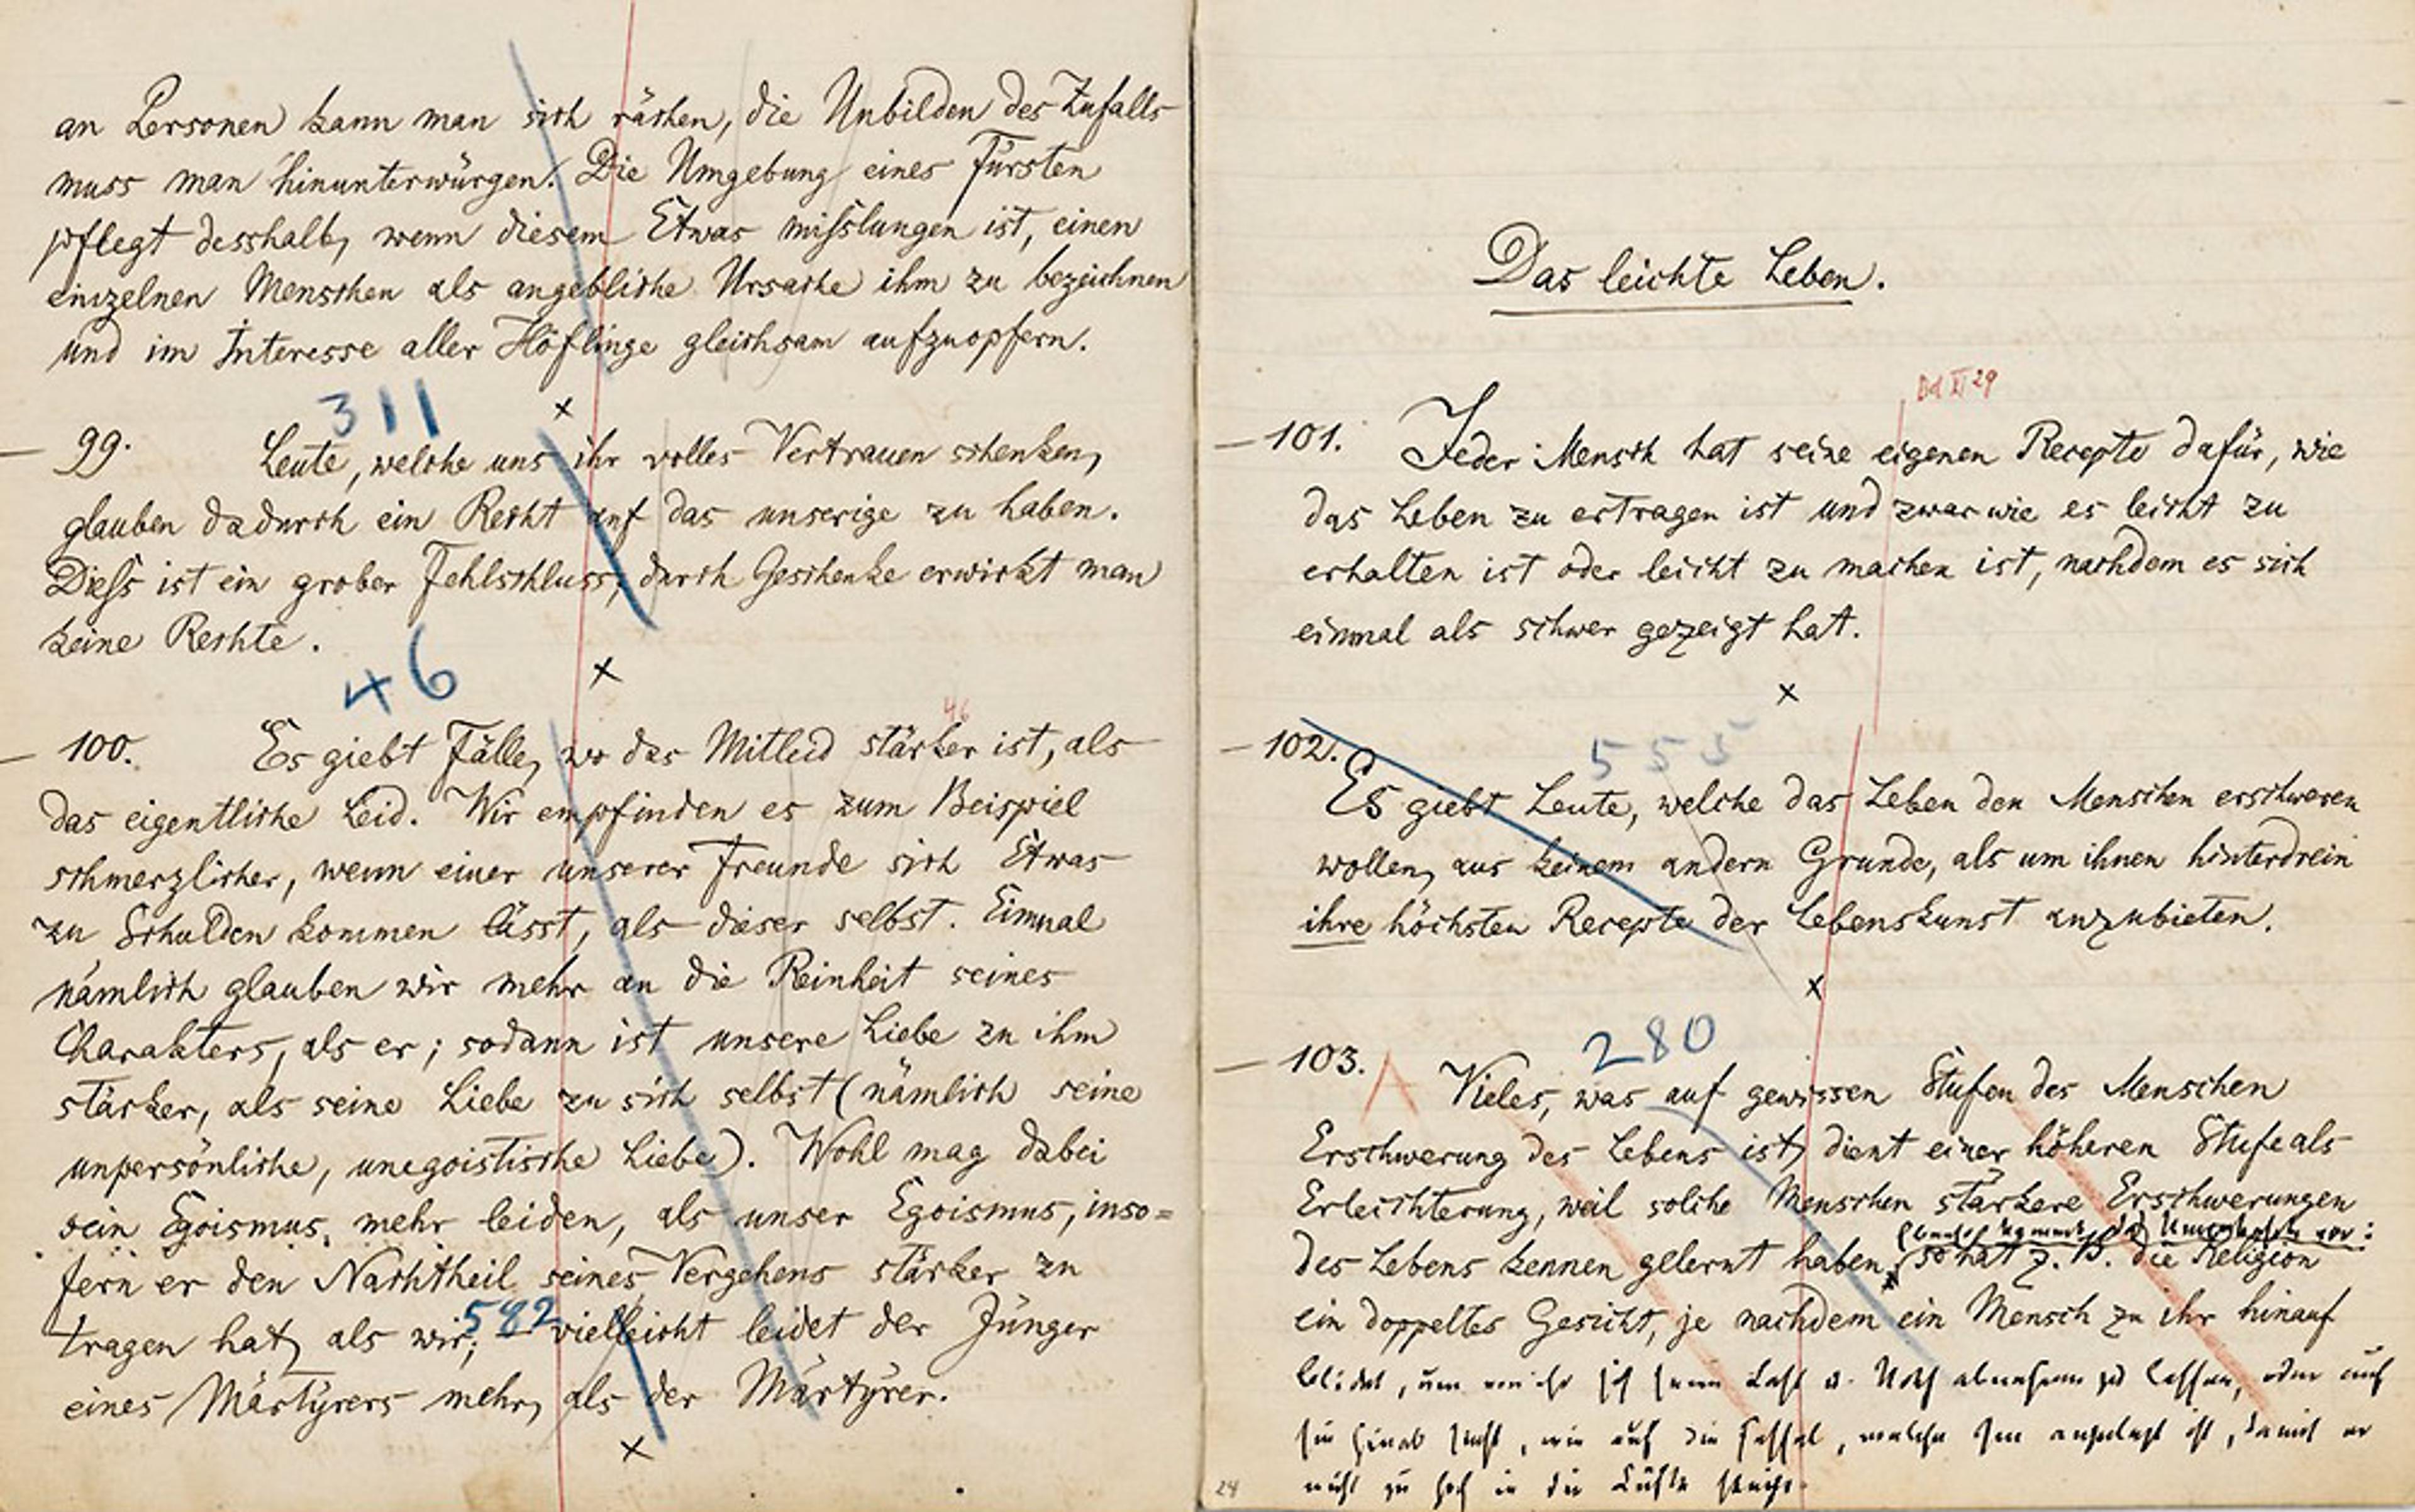 an Personen kann man sich rächen, die Unbilden des Zufalls
muss man hinunterwürgen. Die Umgebung eines Fürsten
pflegt desshalb, wenn diesem Etwas misslungen ist, einen
einzelnen Menschen als angebliche Ursache ihm zu bezeichnen
und im Interesse aller Höflinge gleichsam aufzuopfern.
311 x
— 99. Leute, welche uns ihr volles Vertrauen schenken,
glauben dadurch ein Recht auf das unserige zu haben.
Diess ist ein grober Fehlschluss; durch Geschenke erwirkt man
keine Rechte.
46 x
46
— 100. Es giebt Fälle, wo das Mitleid stärker ist, als
das eigentliche Leid. Wir empfinden es zum Beispiel
schmerzlicher, wenn einer unserer Freunde sich Etwas
zu Schulden kommen lässt, als dieser selbst. Einmal
nämlich glauben wir mehr an die Reinheit seines
Charakters, als er; sodann ist unsere Liebe zu ihm
stärker, als seine Liebe zu sich selbst (nämlich seine
unpersönliche, unegoistische Liebe). Wohl mag dabei
sein Egoismus mehr leiden, als unser Egoismus, inso=
fern er den Nachtheil seines Vergehens stärker zu
tragen hat, als wir; 582 vielleicht leidet der Jünger
eines Märtyrers mehr, als der Märtyrer.
x
Das leichte Leben.
Bd XI 29
— 101. Jeder Mensch hat seine eigenen Recepte dafür, wie
das Leben zu ertragen ist und zwar wie es leicht zu
erhalten ist oder leicht zu machen ist, nachdem es sich
einmal als schwer gezeigt hat.
x
555
— 102. Es giebt Leute, welche das Leben den Menschen erschweren
wollen, aus keinem andern Grunde, als um ihnen hinterdrein
ihre höchsten Recepte der Lebenskunst anzubieten.
x
280
— 103. Vieles, was auf gewissen Stufen des Menschen
Erschwerung des Lebens ist, dient einer höheren Stufe als
Erleichterung, weil solche Menschen stärkere Erschwerungen
Ebenso kommt das Umgekehrte vor:
des Lebens kennen gelernt haben. so hat z. B. die Religion
ein doppeltes Gesicht, je nachdem ein Mensch zu ihr hinauf
blickt, um von ihr sich seine Last u. Noth abnehmen zu lassen, oder auf
sie hinab sieht, wie auf die Fessel, welche ihm angelegt ist, damit er
nicht zu hoch in die Lüfte steige.
24